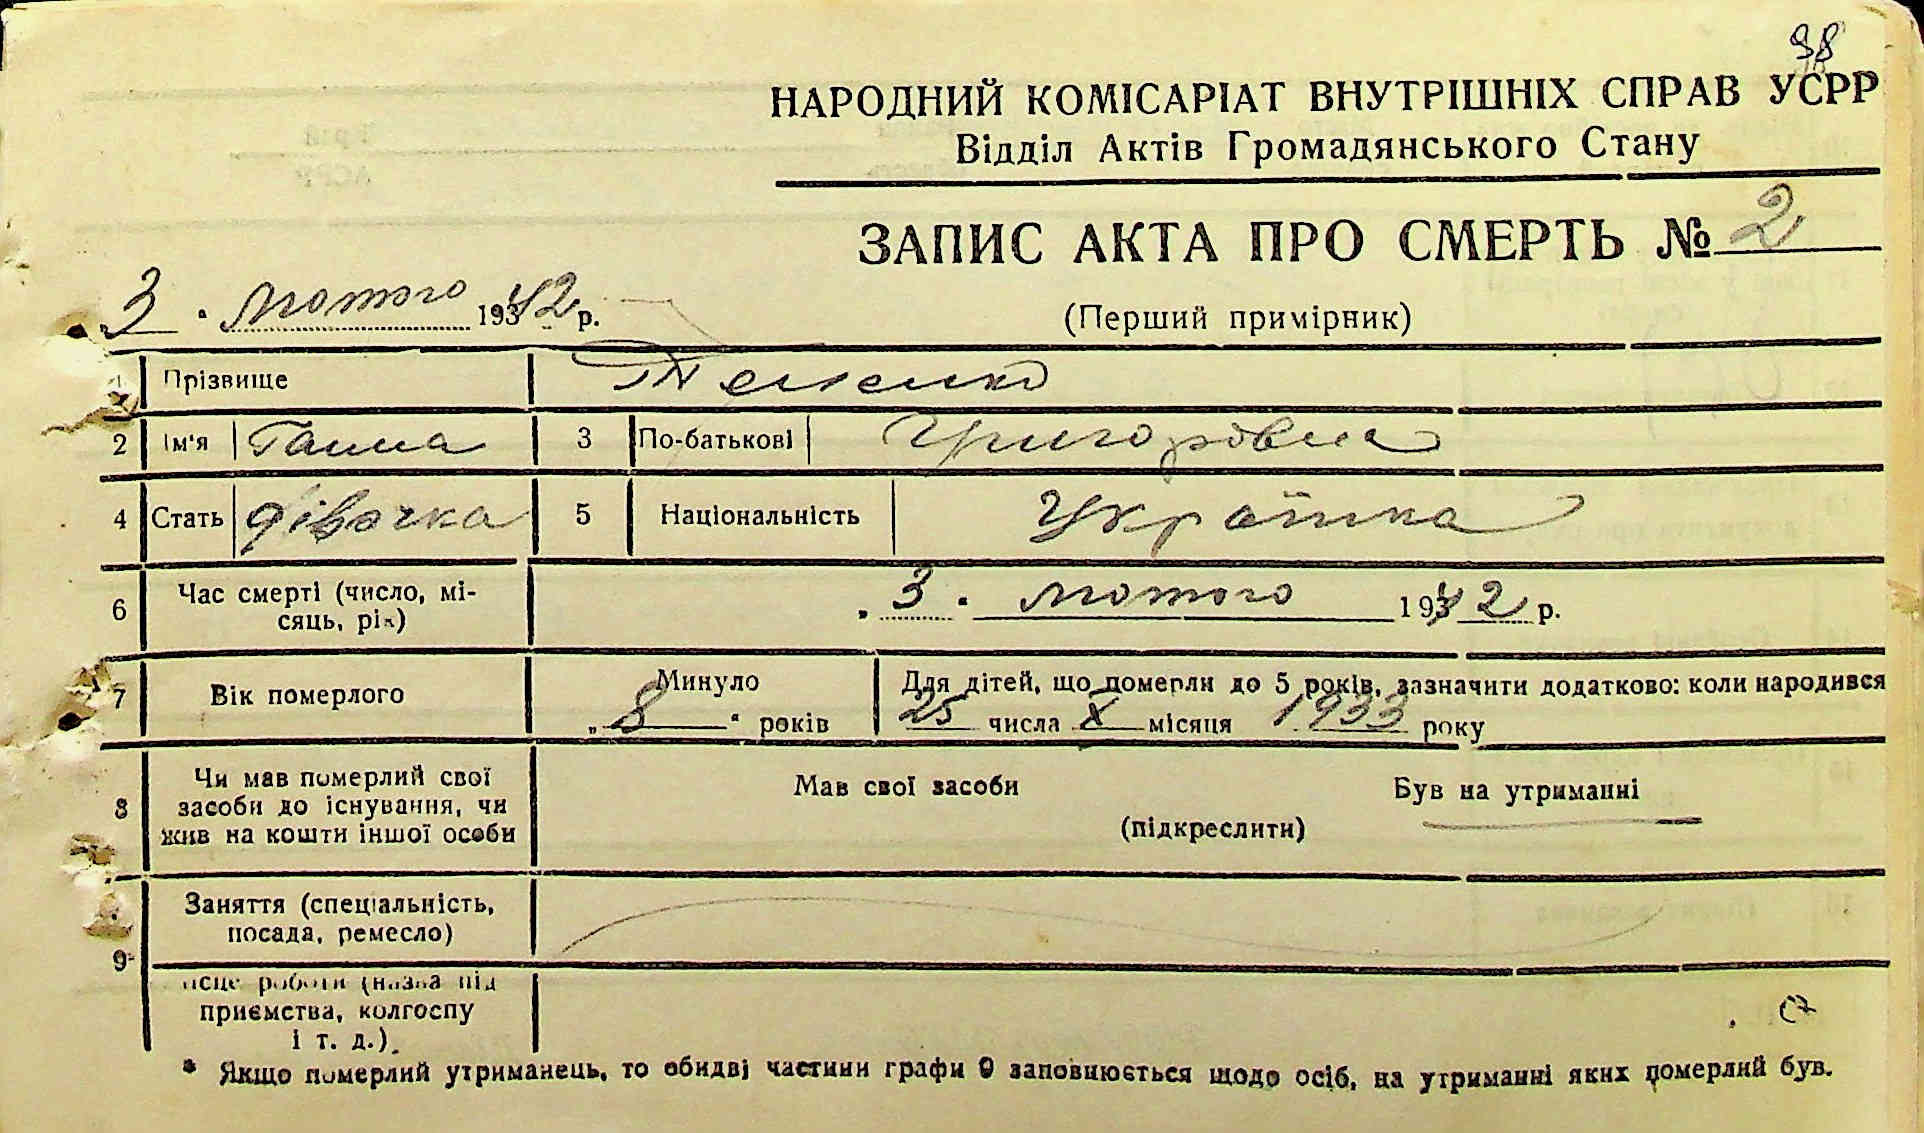 98
НАРОДНИЙ КОМІСАРІАТ ВНУТРІШНІХ СПРАВ УСРР
Відділ Актів Громадянського Стану
ЗАПИС АКТА ПРО СМЕРТЬ № 2
3 " лютого 1942 р.
(Перший примірник)
1 Прізвище
2 Ім'я Ганна 3 По-батькові Григоровна
4 Стать дівочка 5 Національність Українка
6 Час смерті (число, мі-
сяць, рік) „ 3 " лютого 1942 р.
7 Вік померлого Минуло „ 8 " років Для дітей, що померли до 5 років, зазначити додатково: коли народився
25 числа X місяця 1933 року
8 Чи мав померлий свої
засоби до існування, чи
жив на кошти іншої особи Мав свої засоби Був на утриманні
(підкреслити)
9 Заняття (спеціальність,
посада, ремесло)
ісце роботи (назва під
приємства, колгоспу
і т. д.)
* Якщо померлий утриманець, то обидві частини графи 9 заповнюється щодо осіб, на утриманні яких померлий був.